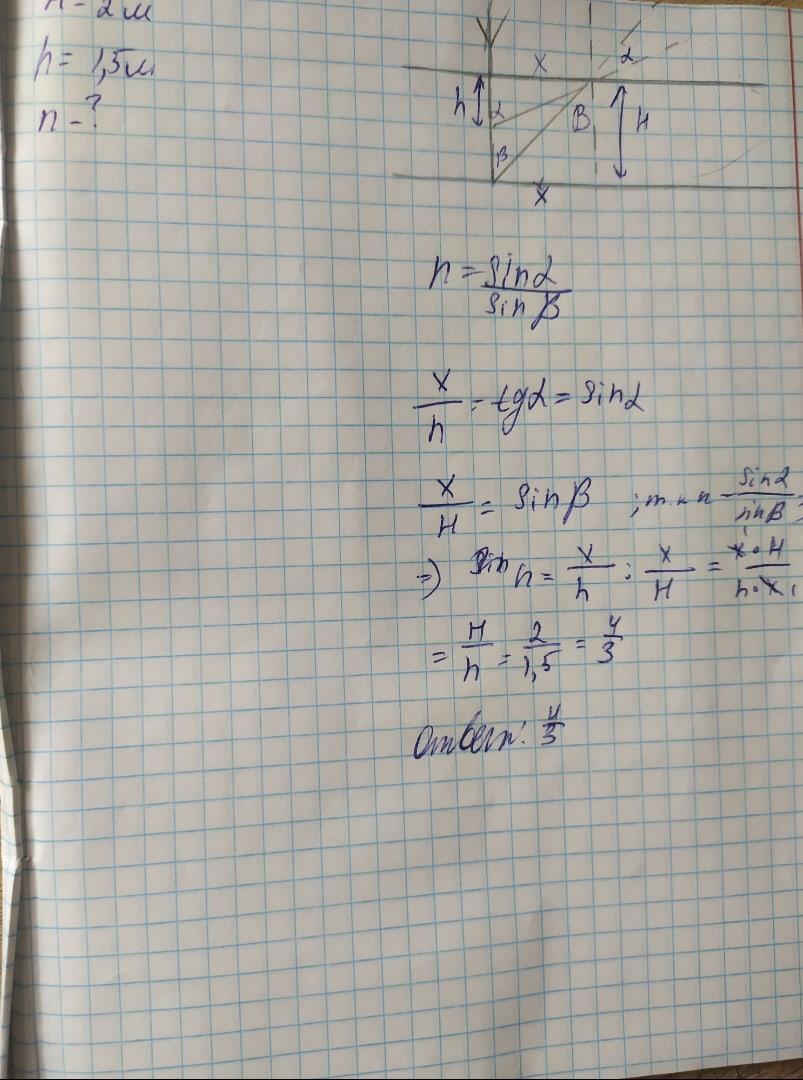 H - 2 м
h = 1,5м
n - ?
x
α
h
α
B
H
β
x
n = sinα / sinβ
x/h = tgα = sinα
x/H = sinβ ; т.к n = sinα/sinβ =
=> n = x/h : x/H = x·H / h·x
= H/h = 2/1,5 = 4/3
Ответ: 4/3